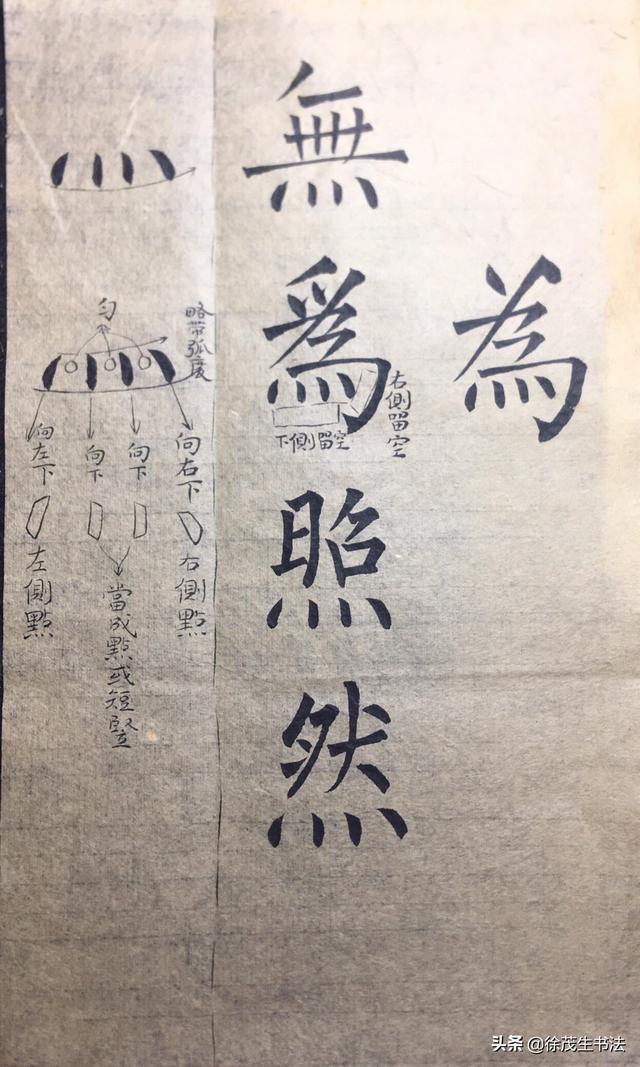 灬
匀
略带弧度
向左下
向下
向下
向右下
左側點
當成點或短竪
右側點
無
爲
下側留空
右側留空
照
然
為
头条 @徐茂生书法